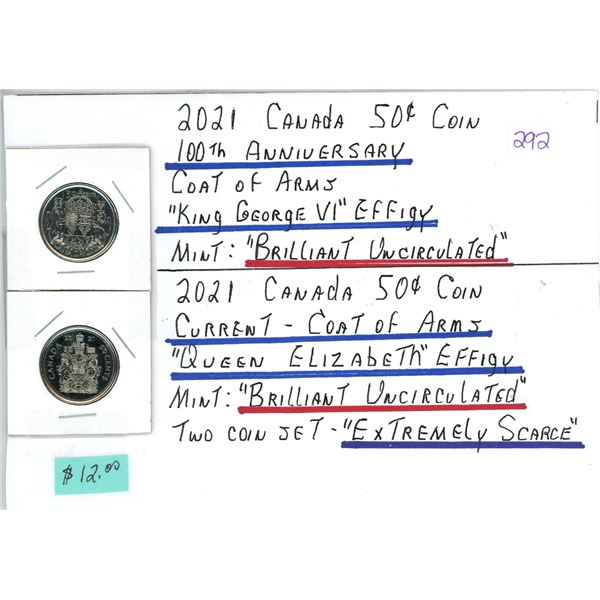 2021 CANADA 50¢ COIN
292
100TH ANNIVERSARY
COAT OF ARMS
"KING GEORGE VI" EFFIGY
MINT: "BRILLIANT UNCIRCULATED"
2021 CANADA 50¢ COIN
CURRENT - COAT OF ARMS
"QUEEN ELIZABETH" EFFIGY
MINT: "BRILLIANT UNCIRCULATED"
TWO COIN SET - "EXTREMELY SCARCE"
CANADA
50 CENTS
$12.00